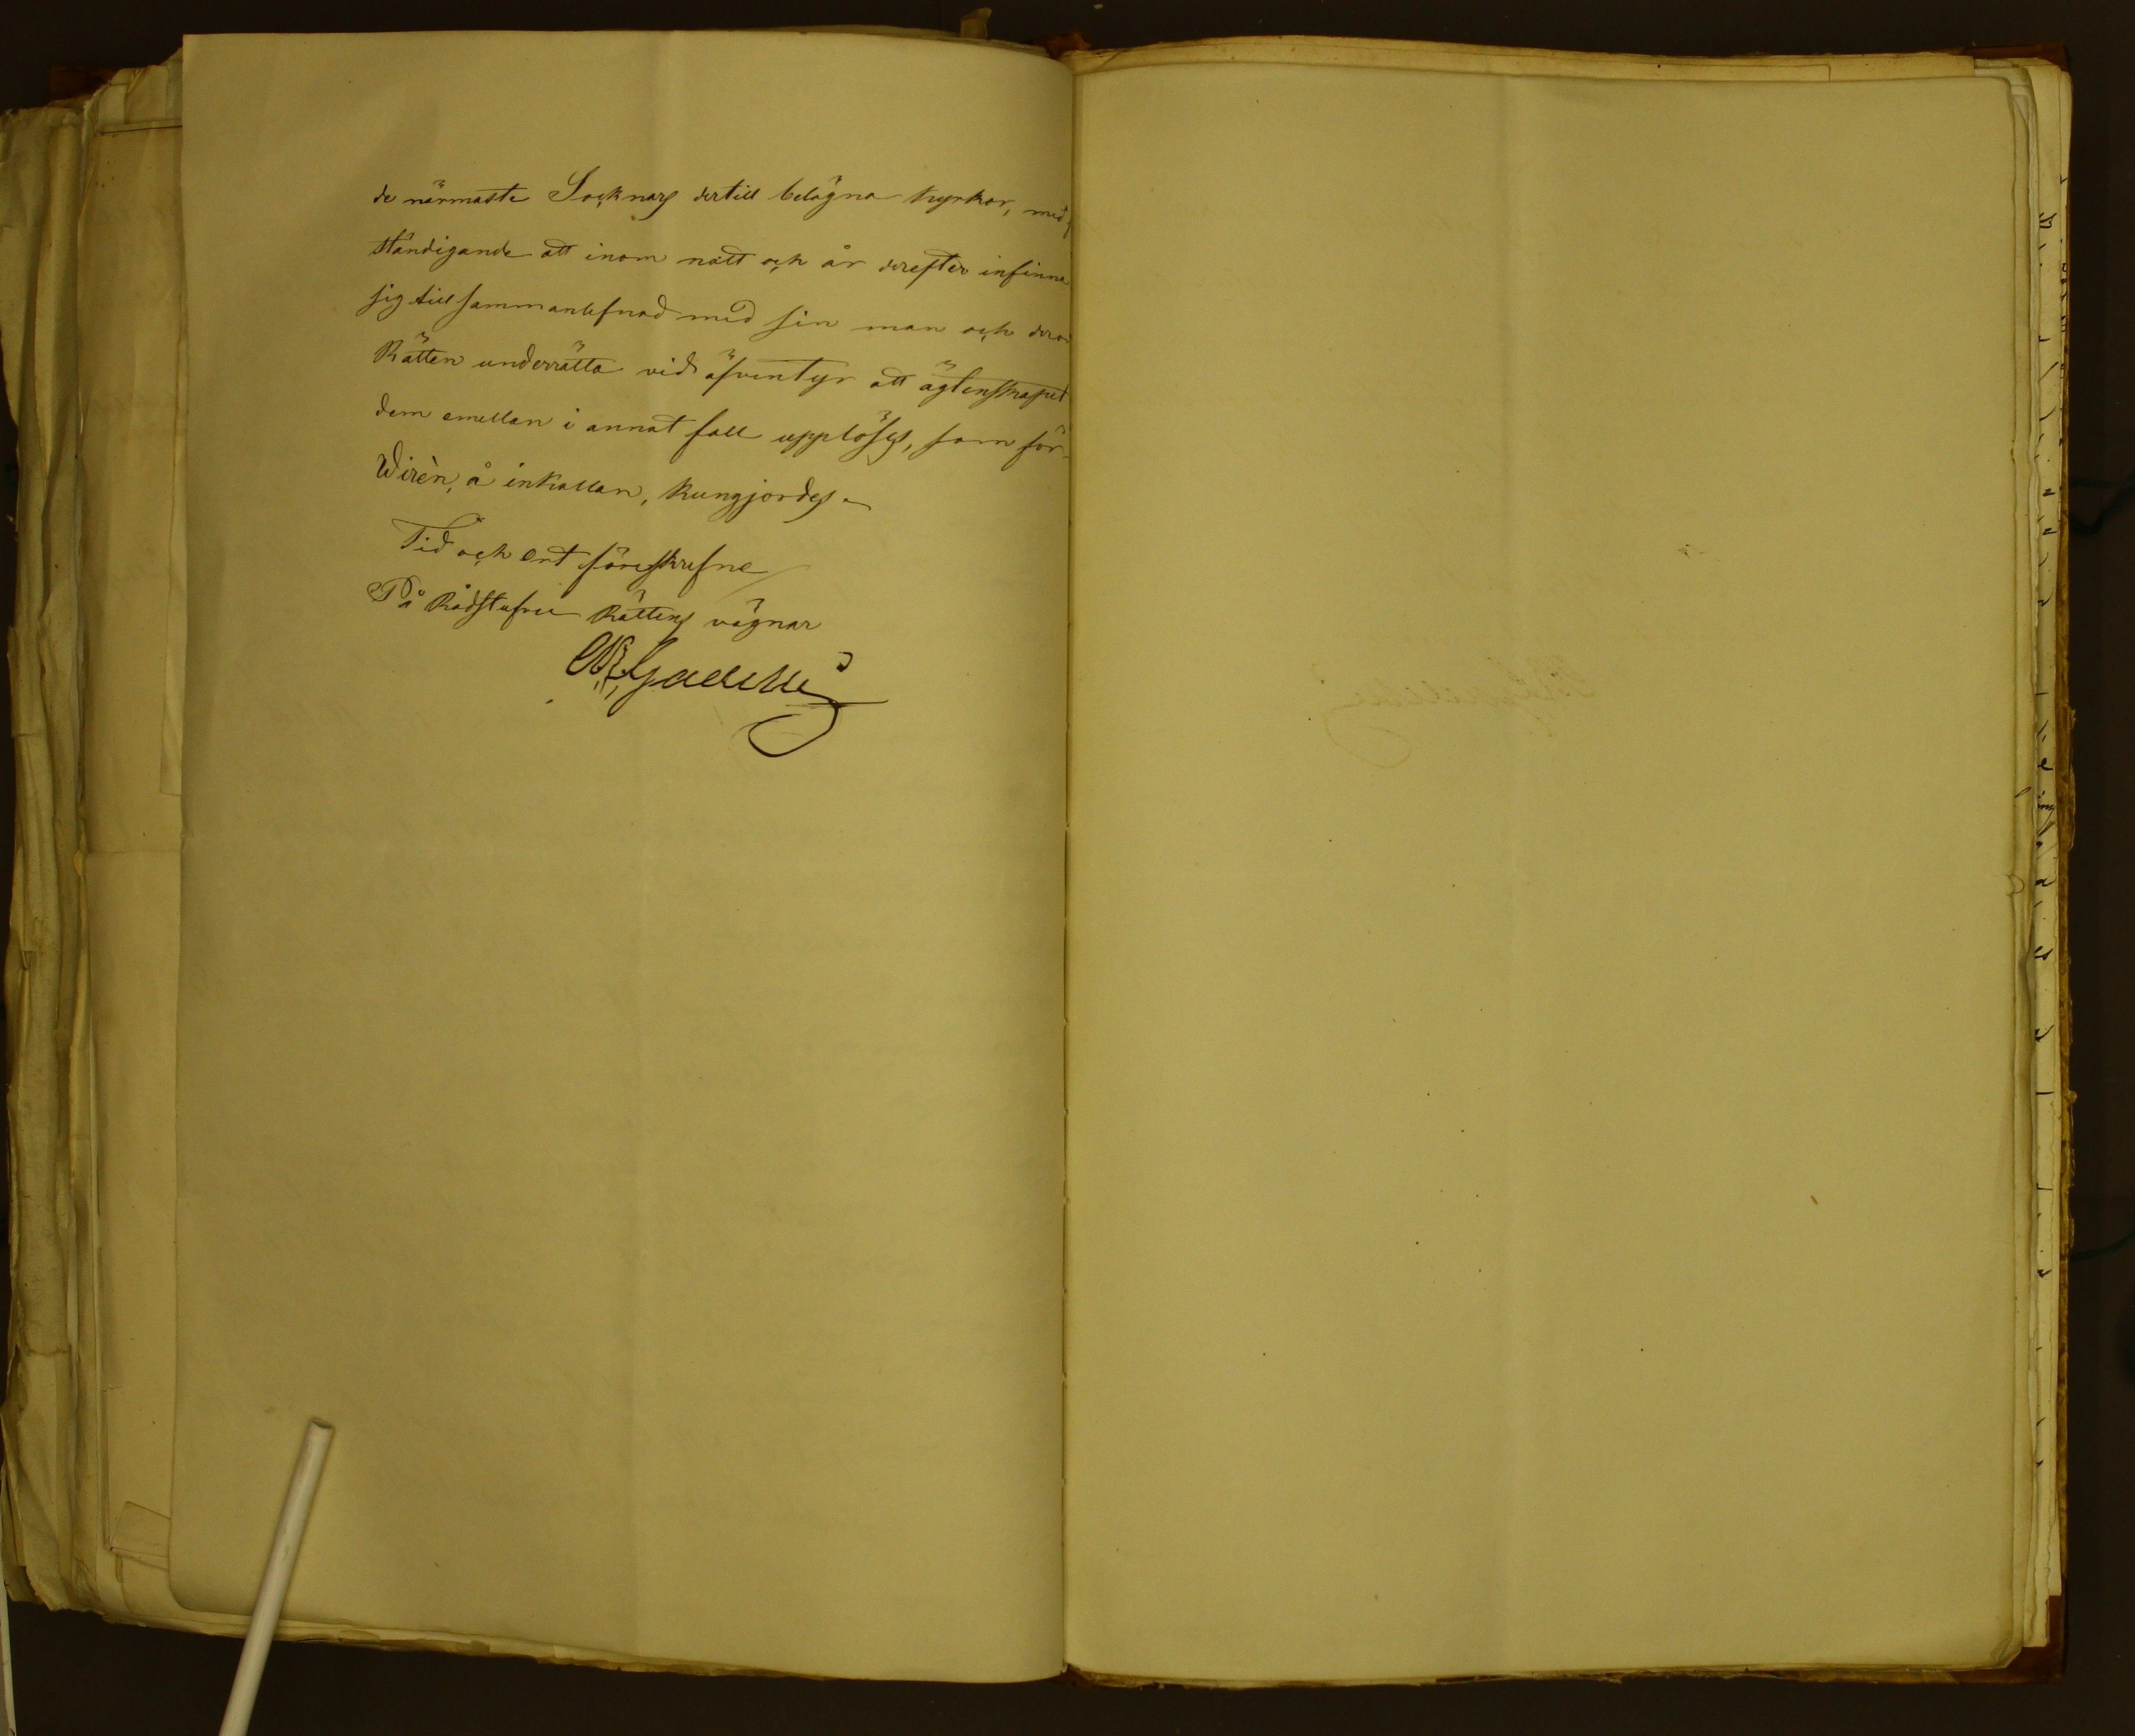 de närmaste Socknars dertill belägna kyrkor, med
ständigande att inom natt och år derefter infinna
sig till sammanlefnad med sin man och derom
Rätten underrätta vid äfventyr att ägtenskapet
dem emellan i annat fall upplöses, som för
Wirèn, å inkallan, kungjordes.
Tid och ort föreskrefne
På Rådstufvu Rättens vägnar